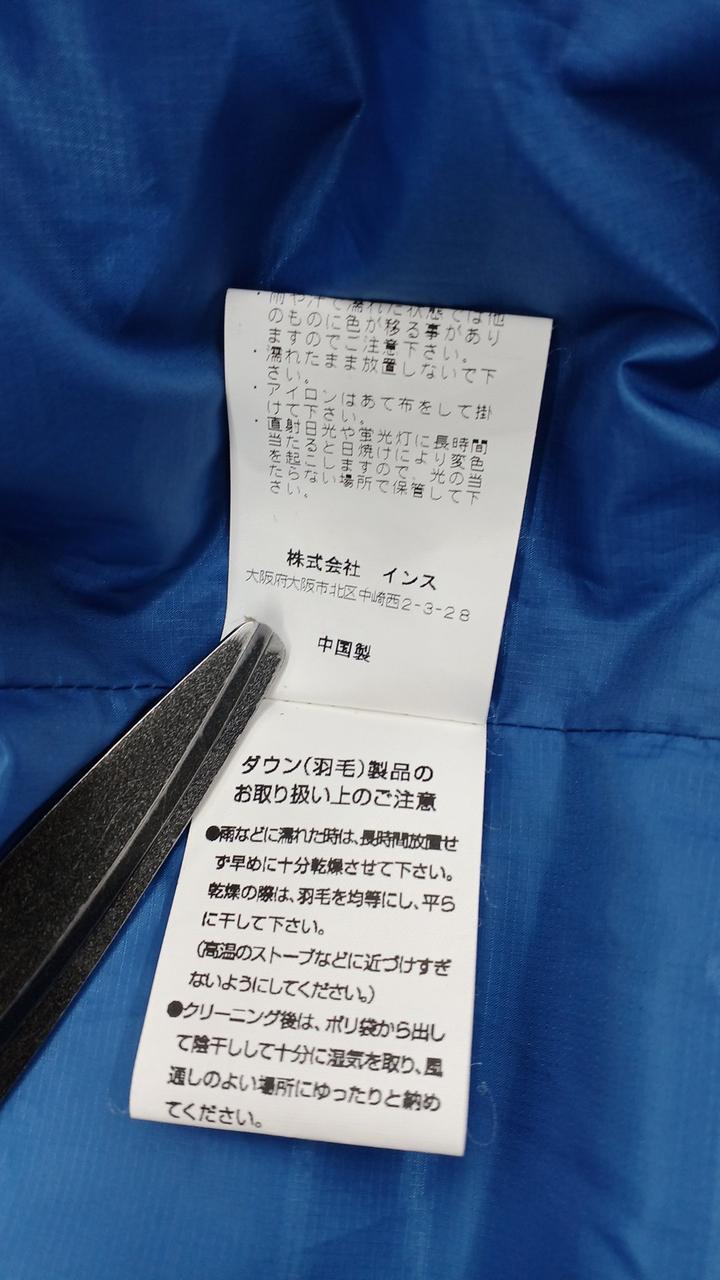 ・雨や汗で濡れた状態では他
のものに色が移る事があり
ますのでご注意下さい。
・濡れたまま放置しないで下
さい。
・アイロンはあて布をして掛
けて下さい。
・直射日光や蛍光灯に長時間
当たると日焼けにより変色
を起こしますので、光の当
たらない場所で保管して下
さい。
株式会社 インス
大阪府大阪市北区中崎西2-3-28
中国製
ダウン(羽毛)製品の
お取り扱い上のご注意
●雨などに濡れた時は、長時間放置せ
ず早めに十分乾燥させて下さい。
乾燥の際は、羽毛を均等にし、平ら
に干して下さい。
(高温のストーブなどに近づけすぎ
ないようにしてください。)
●クリーニング後は、ポリ袋から出し
て陰干しして十分に湿気を取り、風
通しのよい場所にゆったりと納め
てください。